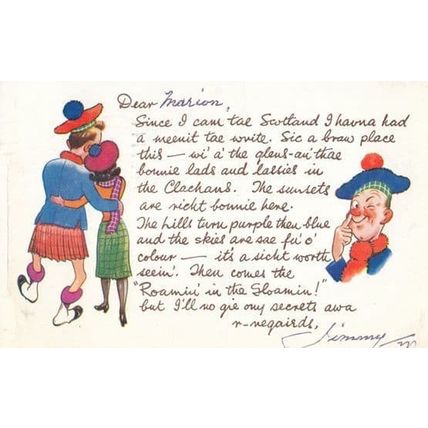 Dear Marion,
Since I cam tae Scotland I havna had
a meenit tae write. Sic a braw place
this — wi' a' the glens - an' thae
bonnie lads and lassies in
the Clachans. The sunsets
are richt bonnie here.
The hills turn purple then blue
and the skies are sae fu' o'
colour — it's a sicht worth
seein'. Then comes the
"Roamin' in the Gloamin!"
but I'll no gie ony secrets awa
r-regairds,
Jimmy